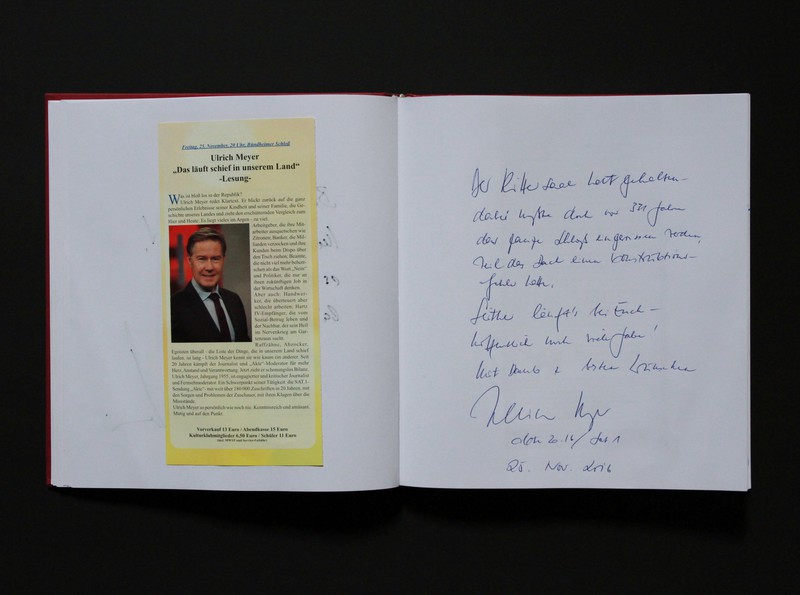 Freitag, 25. November, 20 Uhr, Ründerother Schloß
Ulrich Meyer
„Das läuft schief in unserem Land“
-Lesung-
Was ist bloß los in der Republik?
Ulrich Meyer redet Klartext. Er blickt zurück auf die ganz
persönlichen Erlebnisse seiner Kindheit und seiner Familie, die Ge-
schichte unseres Landes und zieht den erschütternden Vergleich zum
Hier und Heute. Es liegt vieles im Argen - zu viel.
Arbeitgeber, die ihre Mit-
arbeiter ausquetschen wie
Zitronen; Banker, die Mil-
liarden versenken und ihre
Kunden beim Dispo über
den Tisch ziehen; Beamte,
die nicht viel mehr beherr-
schen als das Wort „Nein“
und Politiker, die nur an
ihren zukünftigen Job in
der Wirtschaft denken.
Aber auch: Handwer-
ker, die überteuert aber
schlecht arbeiten. Hartz
IV-Empfänger, die vom
Sozial-Betrug leben und
der Nachbar, der sein Heil
im Nervenkrieg am Gar-
tenzaun sucht.
Raffzähne, Abzocker,
Egoisten überall - die Liste der Dinge, die in unserem Land schief
laufen, ist lang - Ulrich Meyer kennt sie wie kaum ein anderer. Seit
20 Jahren kämpft der Journalist und „Akte“-Moderator für mehr
Herz, Anstand und Verantwortung. Jetzt zieht er schonungslos Bilanz.
Ulrich Meyer, Jahrgang 1955, ist engagierter und kritischer Journalist
und Fernsehmoderator. Ein Schwerpunkt seiner Tätigkeit: die SAT.1-
Sendung „Akte“ - mit weit über 100 000 Zuschriften in 20 Jahren, mit
den Sorgen und Problemen der Zuschauer, mit ihren Klagen über die
Missstände.
Ulrich Meyer so persönlich wie noch nie. Kenntnisreich und amüsant.
Mutig und auf den Punkt.
Vorverkauf 13 Euro / Abendkasse 15 Euro
Kulturklubmitglieder 6,50 Euro / Schüler 11 Euro
Der Rittersaal hat gehalten -
dabei mußte doch vor 331 Jahren
das ganze Schloß eingerissen werden,
weil das Dach einen Konstruktions-
fehler hatte.
Seither längst's bei Euch -
hoffentlich noch viele Jahre!
Mit Dank & besten Wünschen
Ulrich Meyer
akte 20.16 / Sat 1
25. Nov. 2016